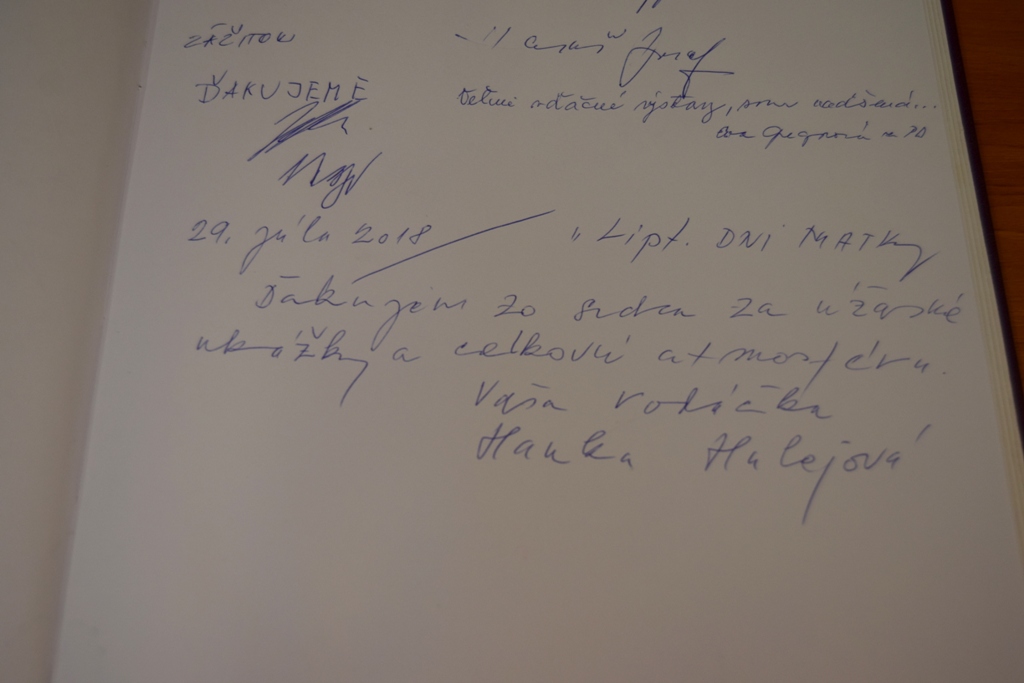 ZÁŽITOK
Josef
ĎAKUJEME
Veľmi vďačné výstavy, som nadšená...
29. júla 2018 " Lipt. DNI MATKY
Ďakujem zo srdca za úžasné
ukážky a celkovú atmosféru.
Vaša rodáčka
Hanka Hulejová